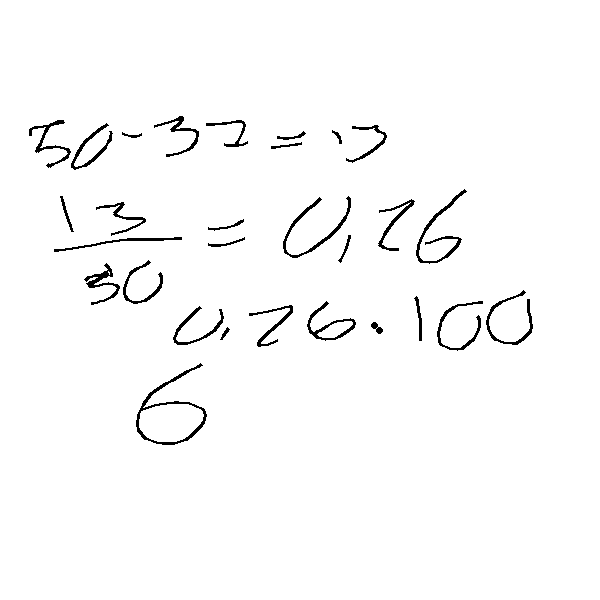 50-37=13
13/50 = 0,26
0,26·100
6